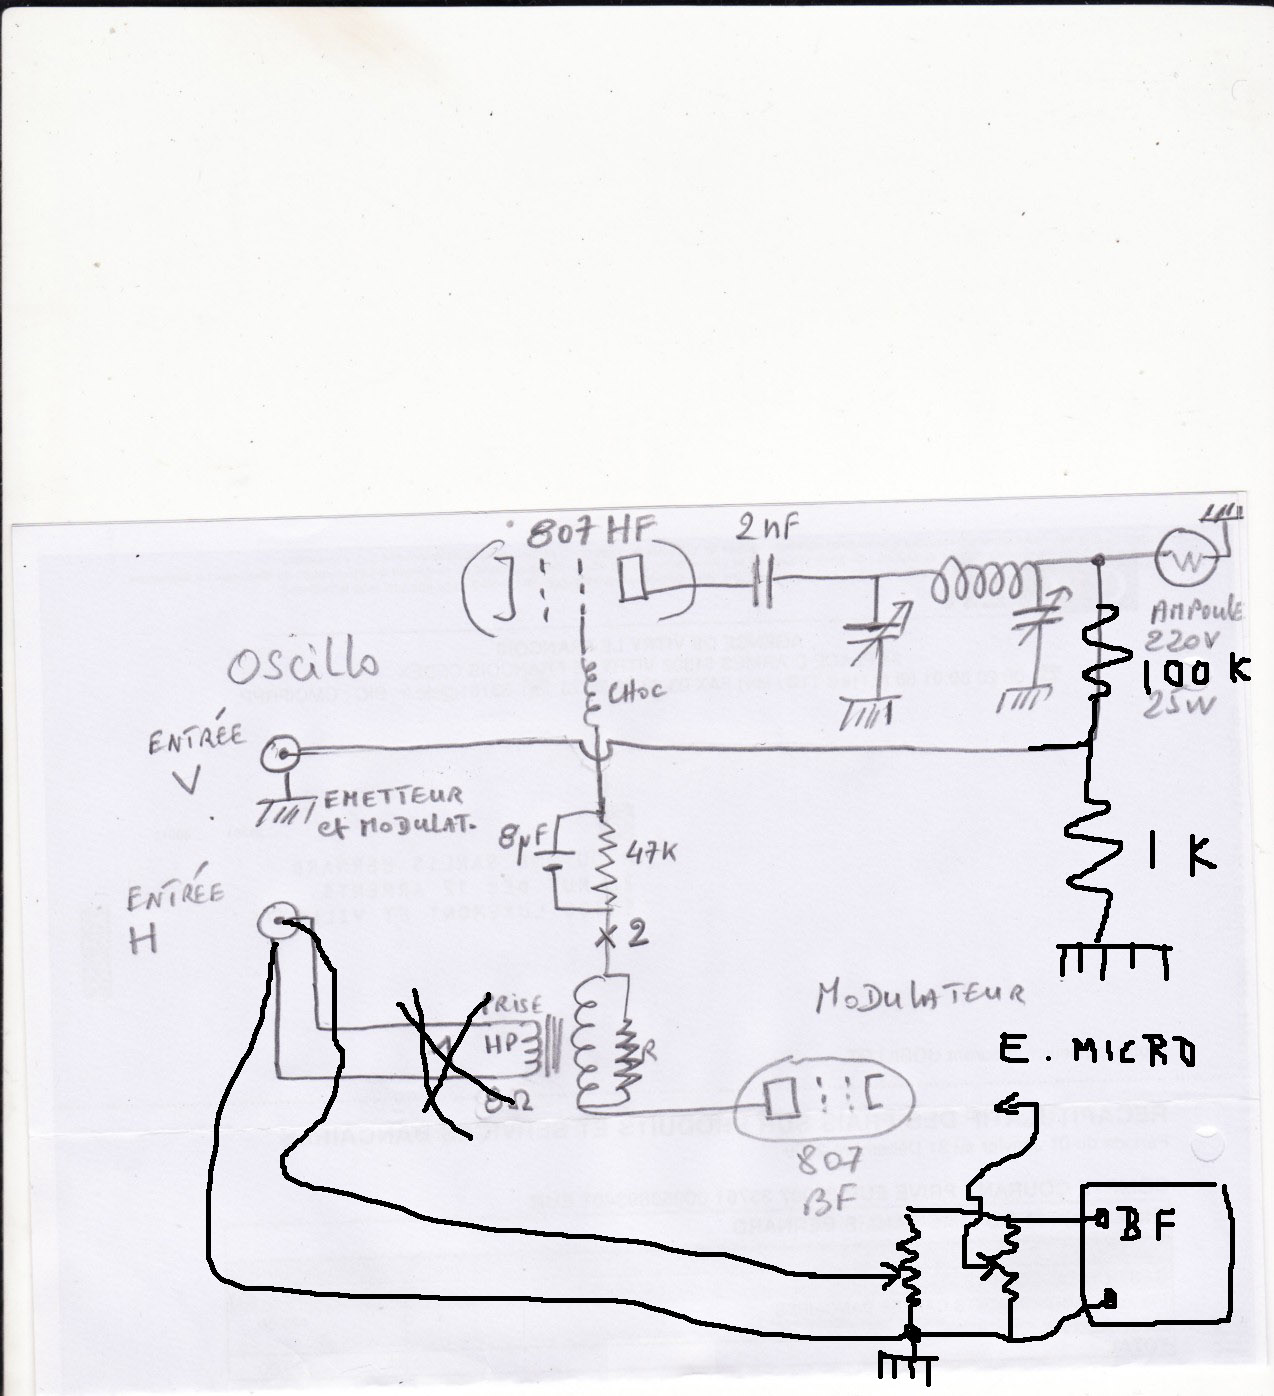 807 HF
2nF
OSCILLO
CHOC
AMPOULE
220V
100K
25W
ENTRÉE
V
EMETTEUR
et MODULAT.
8µF
47K
1 K
ENTRÉE
H
2
MODULATEUR
PRISE
HP
8Ω
R
E. MICRO
807
BF
BF